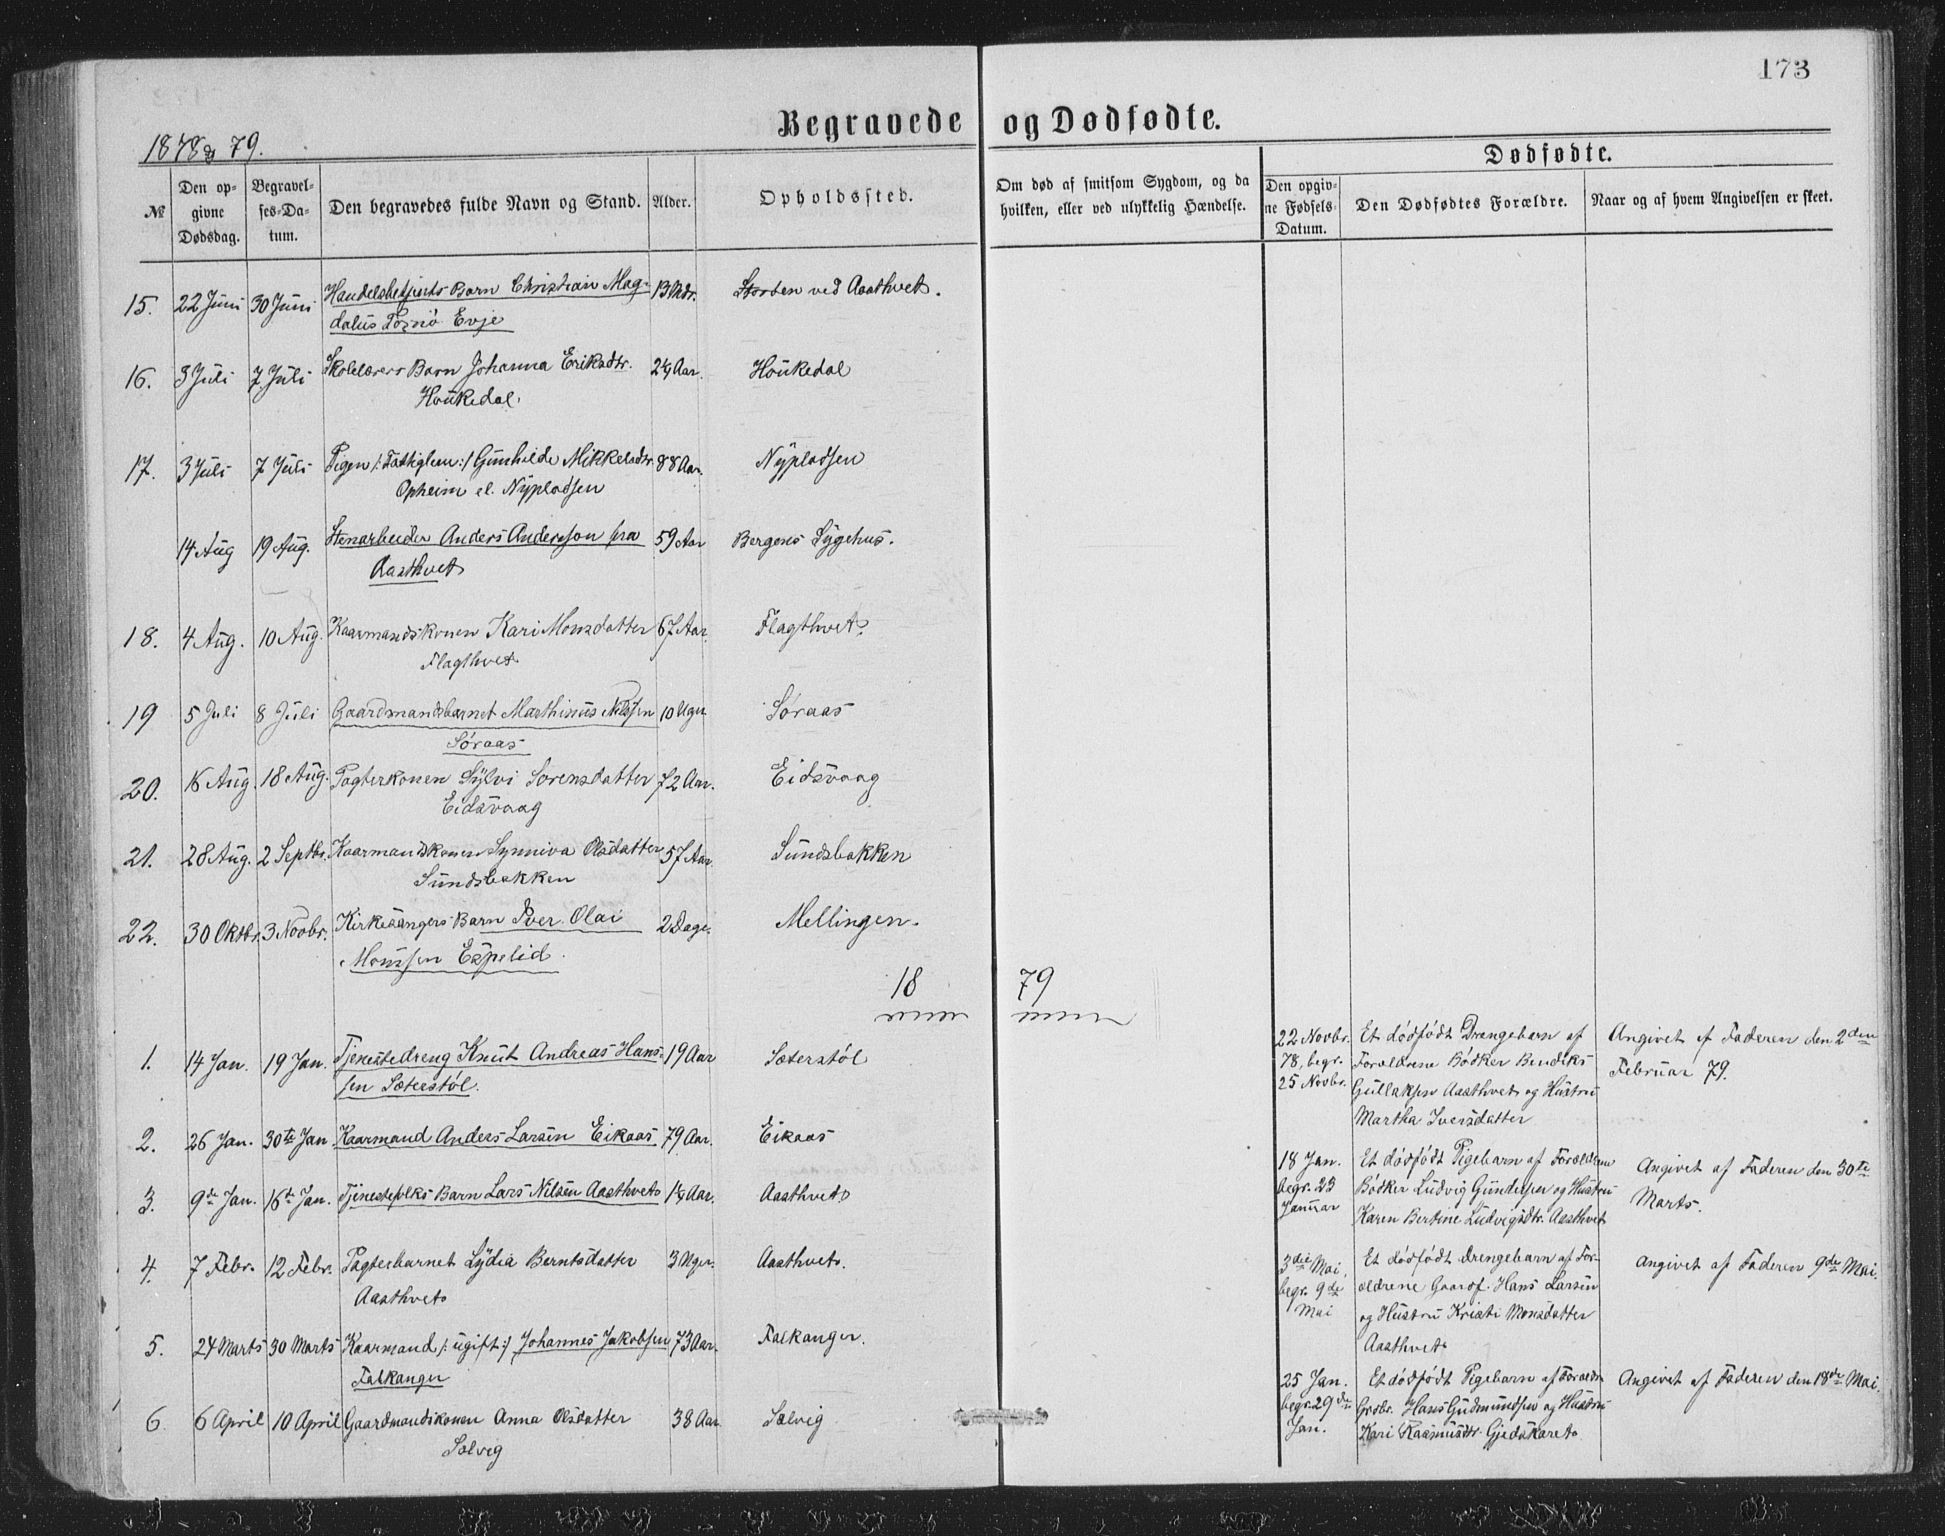 173
Begravede og Dødfødte.
1878 & 79.
Dødfødte.
№
Den opgivne Dødsdag.
Begravelses-Datum.
Den begravedes fulde Navn og Stand.
Alder.
Opholdssted.
Om død af smitsom Sygdom, og da hvilken, eller ved ulykkelig Hændelse.
Den opgivne Fødsels-Datum.
Den Dødfødtes Forældre.
Naar og af hvem Angivelsen er skeet.
15. 22 Juni 30 Juni Handelsbetjents Barn Christian Mag- 13 Mdr. ved Aasthvet.
dalus Evje
16. 3 Juli 7 Juli Skolelærers Barn Johanna Eriksdtr. 2¼ Aar. Houkedal
Houkedal.
17. 3 Juli 7 Juli Pigen /: Fattiglem :/ Gunhilde Mikkelsdtr. 88 Aar. Nýpladsen
Opheim el. Nýpladsen
14 Aug 19 Aug. Stenarbeider Anders Anderson fra 59 Aar Bergens Sygehus.
Aasthvet
18. 4 Aug. 10 Aug. Kaarmandskonen Kari Monsdatter 67 Aar. Flagthvet.
Flagthvet
19 5 Juli 8 Juli Gaardmandsbarnet Marthinus Nilssen 10 Uger Søraas
Søraas
20. 16 Aug 18 Aug. Pagterkonen Sÿlvi Sorensdatter 72 Aar. Eidsvaag
Eidsvaag
21. 28 Aug. 2 Septbr. Kaarmandskonen Synniva Olsdatter 57 Aar Sundsbakken
Sundsbakken
22. 30 Oktbr. 3 Novbr. Kirkesangers Barn Iver Olai 2 Dage. Mellingen.
Monssen Espelid.
18 79
1. 14 Jan. 19 Jan. Tjenestedreng Knut Andreas Hans- 19 Aar Sæterstøl
sen Sæterstøl.
2. 26 Jan. 30te Jan Kaarmand Anders Larsen Eikaas 79 Aar. Eikaas
3. 9de Jan. 16de Jan. Tjenestefolks Barn Lars Nilsen Aasthvet 1¼ Aar. Aasthvet
4. 7 Febr. 12 Febr. Pagterbarnet Lÿdia Berntsdatter 3 Uger. Aasthvet.
Aasthvet
5. 24 Marts 30 Marts Kaarmand /: ugift :/ Johannes Jakobsen 73 Aar. Falkanger.
Falkanger
6. 6 April 10 April Gaardmandskonen Anna Olsdatter 38 Aar Sælvig
Sælvig
22 Novbr. Et dødfødt Drengebarn af Angivet af Faderen den 2den
78, begr. Forældrene Bødker Bendiks Februar 79.
25 Novbr. Gullaksen Aasthvet og Hustru
Martha Iversdatter
18 Jan. Et dødfødt Pigebarn af Forældrene Angivet af Faderen den 30te
begr. 23 Bødker Ludvig Gundersen og Hustru Marts.
Januar Karen Bertine Ludvigsdtr. Aasthvet
3die Mai, Et dødfødt Drengebarn af For- Angivet af Faderen 9de Mai.
begr. 9de ældrene Hans Larsen
Mai og Hustru Kristi Monsdatter
Aasthvet
25 Jan. Et dødfødt Pigebarn af Forældr. Angivet af Faderen den 18de Mai.
begr. 29de Grdbr. Hans Gudmundsen og Hustru
Jan. Kari Rasmusdtr. Gjedskaret